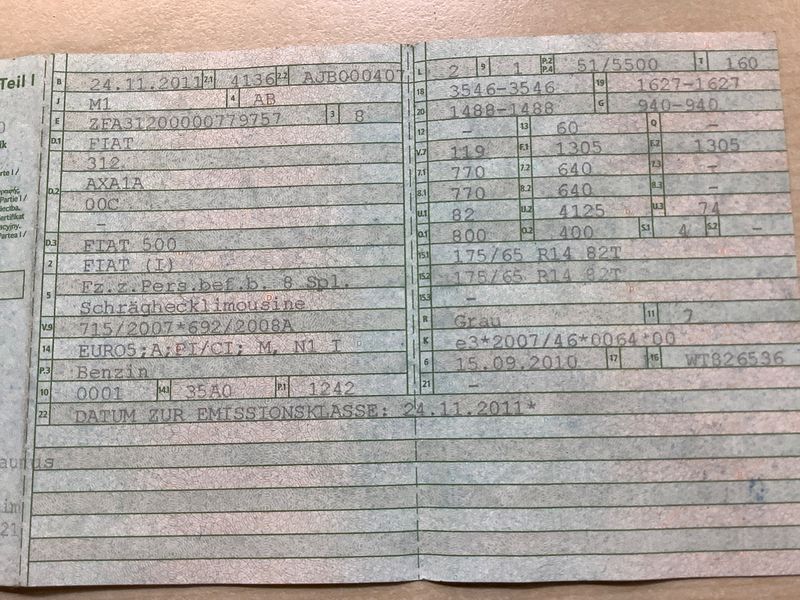 Teil I
B 24.11.2011 2.1 4136 2.2 AJB000407
J M1 4 AB
E ZFA31200000779757 3 8
D.1 FIAT
312
D.2 AXA1A
00C
–
D.3 FIAT 500
2 FIAT (I)
5 Fz.z.Pers.bef.b. 8 Spl.
Schräghecklimousine
V.9 715/2007*692/2008A
14 EURO5;A;PI/CI; M, N1 I
P.3 Benzin
10 0001 14.1 35A0 P.1 1242
22 DATUM ZUR EMISSIONSKLASSE: 24.11.2011*
L 2 9 1 P.2 P.4 51/5500 T 160
18 3546-3546 19 1627-1627
20 1488-1488 G 940-940
12 – 13 60 Q –
V.7 119 F.1 1305 F.2 1305
7.1 770 7.2 640 7.3 –
8.1 770 8.2 640 8.3 –
U.1 82 U.2 4125 U.3 74
O.1 800 O.2 400 S.1 4 S.2 –
15.1 175/65 R14 82T
15.2 175/65 R14 82T
15.3 –
R Grau 11 7
K e3*2007/46*0064*00
6 15.09.2010 17 16 WT826536
21 –